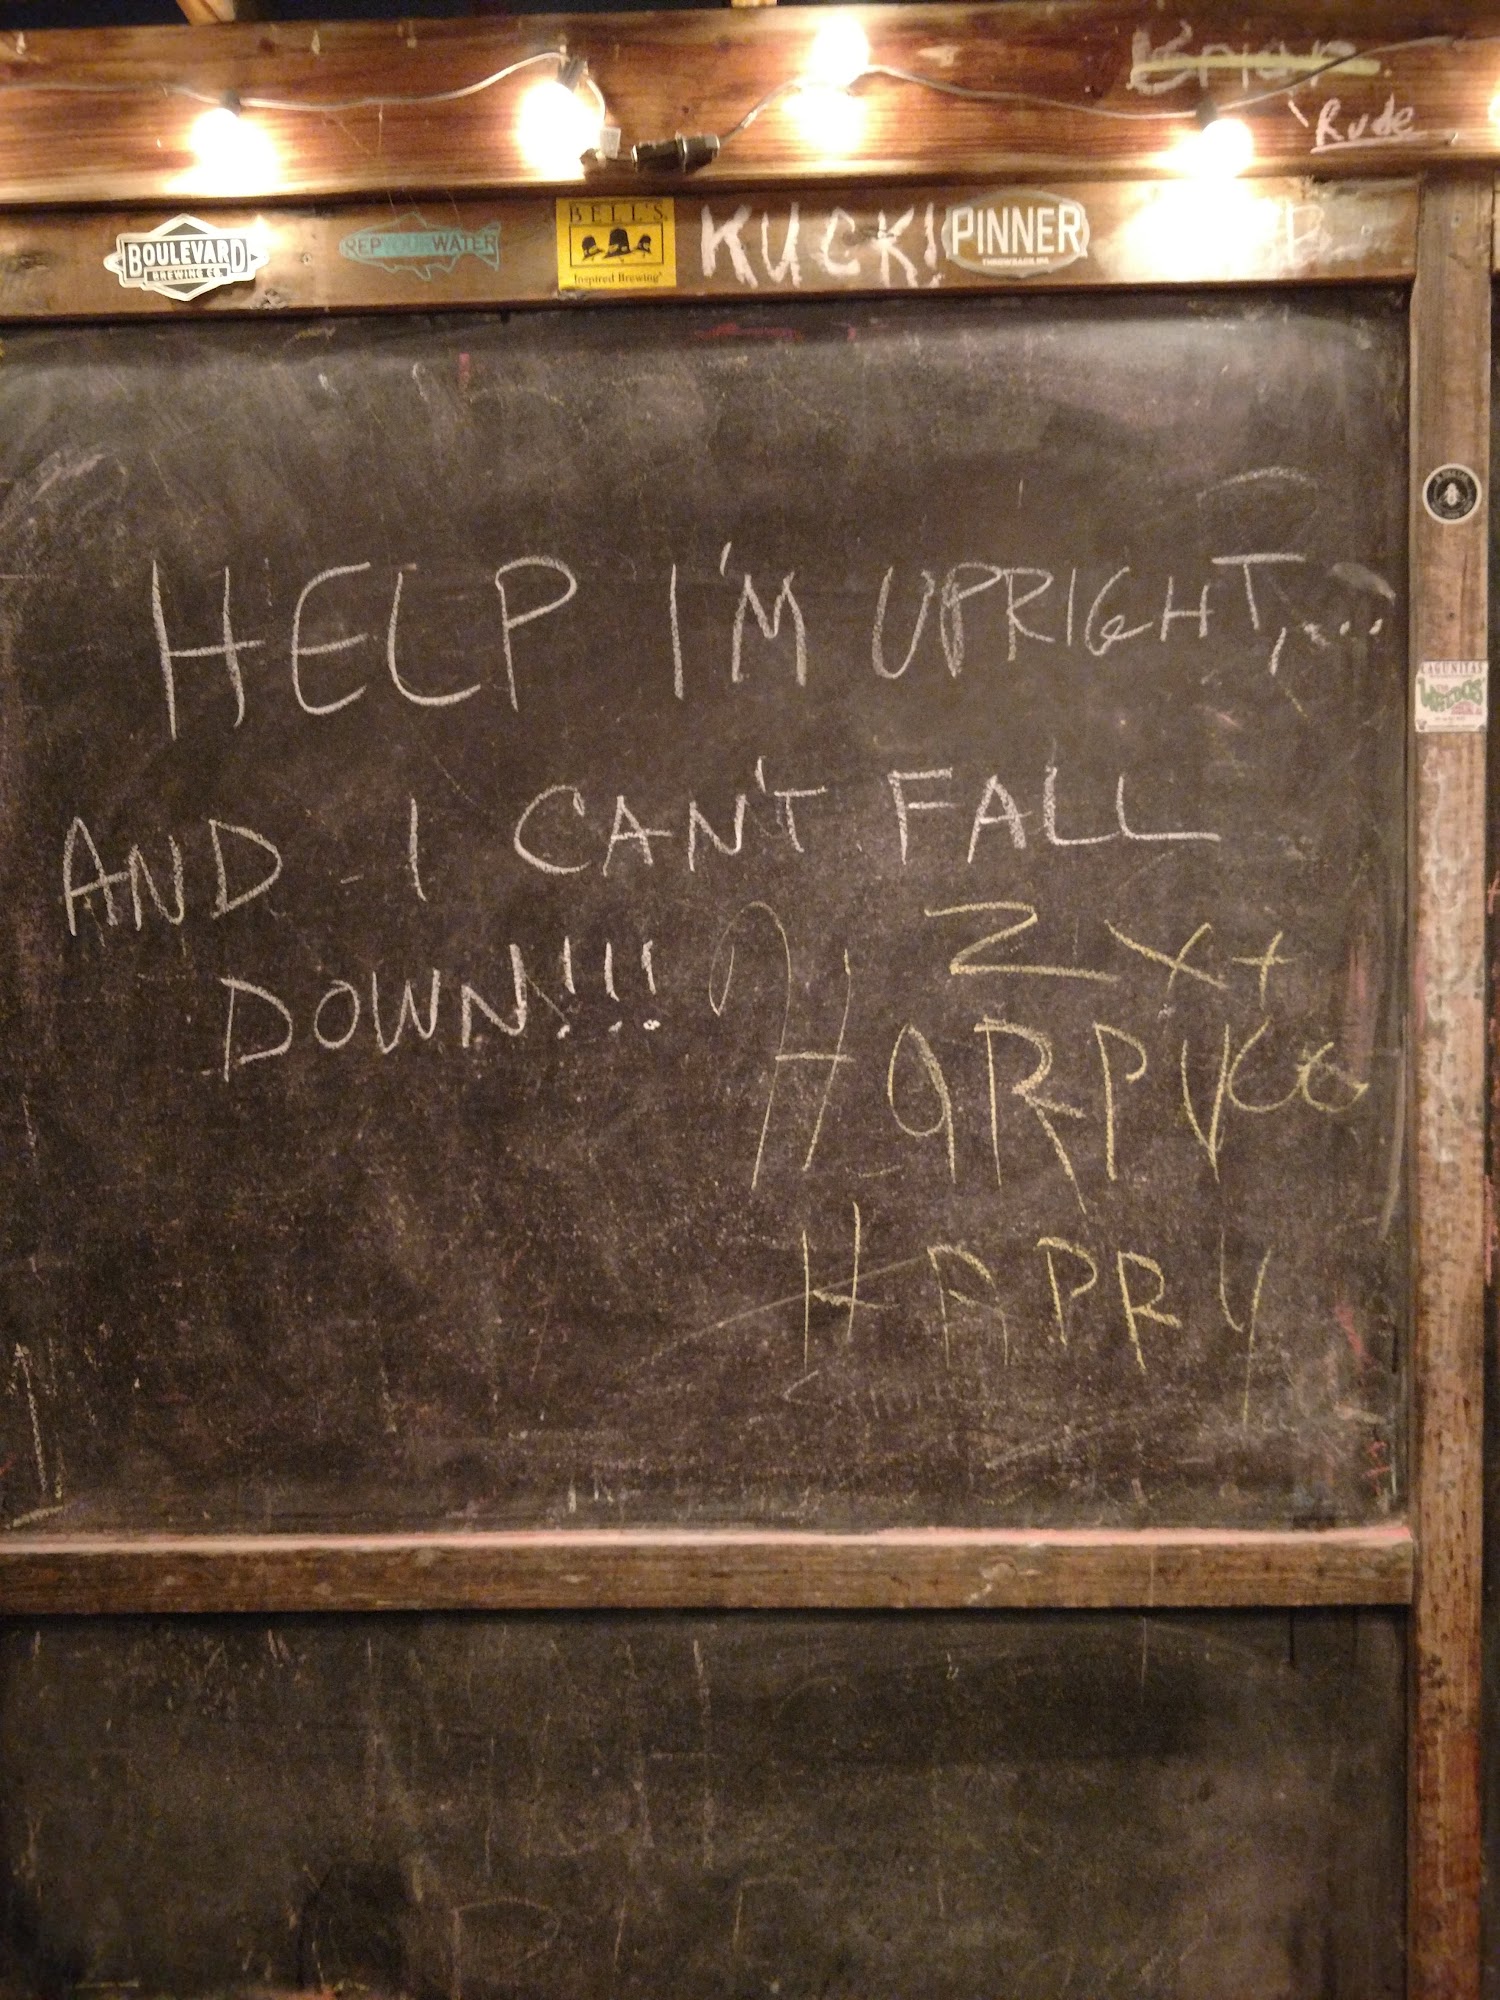 Rude
BOULEVARD
BREWING CO.
REPYOURWATER
BELL'S
Inspired Brewing
KUCK!
PINNER
THROWBACK IPA
HELP I'M UPRIGHT,...
AND I CAN'T FALL
DOWN!!!
LAGUNITAS
HAPPY